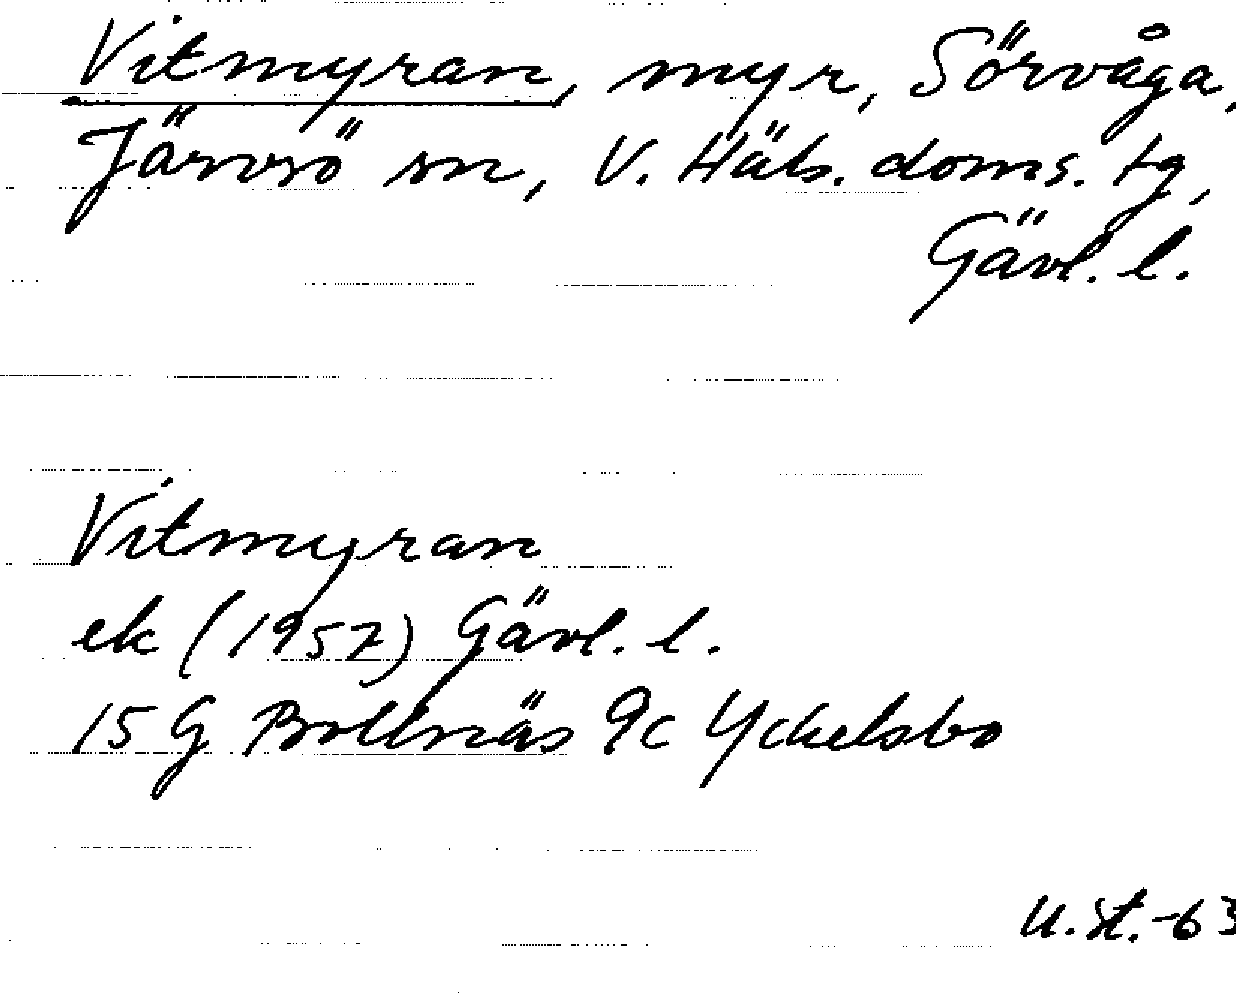 Vitmyran, myr, Sörvåga,
Järvsö sn, V. Häls. doms. tg,
Gävl. l.
Vitmyran
ek (1957) Gävl. l.
15 G Bollnäs 9c Yckelsbo
U. St. -63